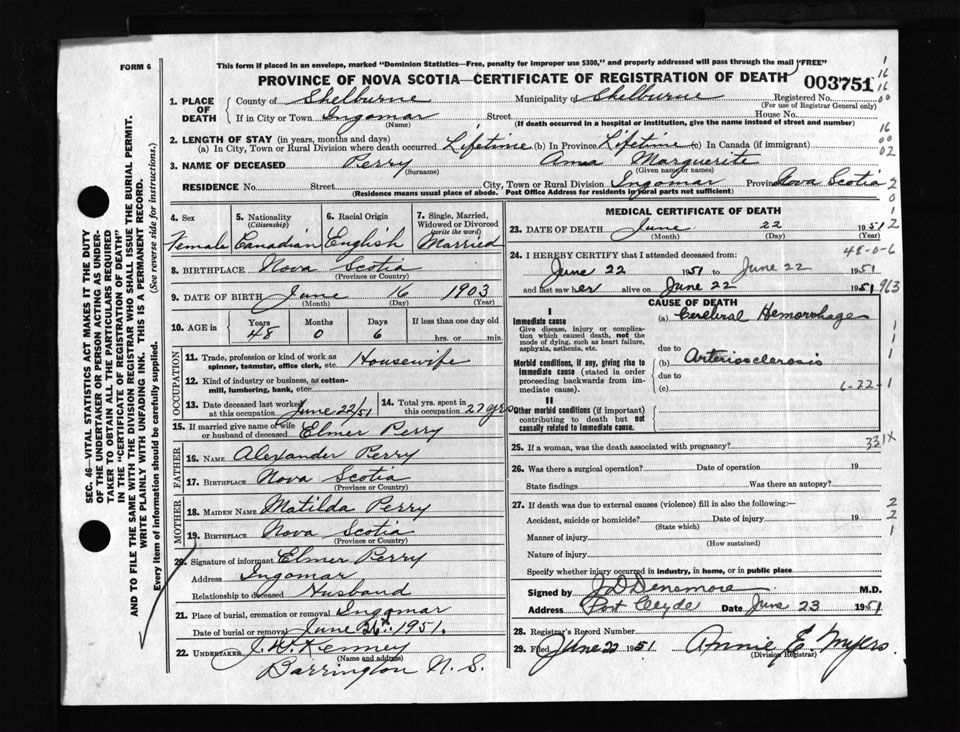 FORM 6
This form if placed in an envelope, marked "Dominion Statistics—Free, penalty for improper use $300," and properly addressed will pass through the mail "FREE"
PROVINCE OF NOVA SCOTIA—CERTIFICATE OF REGISTRATION OF DEATH
003751
1. PLACE OF DEATH
County of Shelburne Municipality of Shelburne Registered No.
(For use of Registrar General only)
If in City or Town Ingomar Street House No.
(Name) (If death occurred in a hospital or institution, give the name instead of street and number)
2. LENGTH OF STAY (in years, months and days)
(a) In City, Town or Rural Division where death occurred Lifetime (b) In Province Lifetime (c) In Canada (if immigrant)
3. NAME OF DECEASED Perry Anna Marguerite
(Surname) (Given name or names)
RESIDENCE No. Street City, Town or Rural Division Ingomar Province Nova Scotia
(Residence means usual place of abode. Post Office Address for residents in rural parts not sufficient)
4. Sex Female
5. Nationality (Citizenship) Canadian
6. Racial Origin English
7. Single, Married, Widowed or Divorced (write the word) Married
8. BIRTHPLACE Nova Scotia
(Province or Country)
9. DATE OF BIRTH June 16 1903
(Month) (Day) (Year)
10. AGE in Years 48 Months 0 Days 6 If less than one day old hrs. or min.
OCCUPATION
11. Trade, profession or kind of work as spinner, teamster, office clerk, etc. Housewife
12. Kind of industry or business, as cotton-mill, lumbering, bank, etc.
13. Date deceased last worked at this occupation June 22/51
14. Total yrs. spent in this occupation 27 yrs
15. If married give name of wife or husband of deceased Elmer Perry
FATHER
16. Name Alexander Perry
17. Birthplace Nova Scotia
(Province or Country)
MOTHER
18. Maiden Name Matilda Perry
19. Birthplace Nova Scotia
(Province or Country)
20. Signature of informant Elmer Perry
Address Ingomar
Relationship to deceased Husband
21. Place of burial, cremation or removal Ingomar
Date of burial or removal June 26th 1951.
22. UNDERTAKER J. W. Kenney
(Name and address)
Barrington N. S.
MEDICAL CERTIFICATE OF DEATH
23. DATE OF DEATH June 22 1951
(Month) (Day) (Year)
48-0-6
24. I HEREBY CERTIFY that I attended deceased from:
June 22 1951 to June 22 1951
and last saw her alive on June 22 1951 963
CAUSE OF DEATH
I
Immediate cause (a) Cerebral Hemorrhage
Give disease, injury or complication which caused death, not the mode of dying, such as heart failure, asphyxia, asthenia, etc.
due to
Morbid conditions, if any, giving rise to immediate cause (stated in order proceeding backwards from immediate cause).
(b) Arteriosclerosis
due to
(c)
6-22-1
II
Other morbid conditions (if important) contributing to death but not causally related to immediate cause.
25. If a woman, was the death associated with pregnancy? 331X
26. Was there a surgical operation? Date of operation 19
State findings Was there an autopsy?
27. If death was due to external causes (violence) fill in also the following:—
Accident, suicide or homicide? Date of injury 19
(State which)
Manner of injury
(How sustained)
Nature of injury
Specify whether injury occurred in industry, in home, or in public place
Signed by J D Densmore M.D.
Address Port Clyde Date June 23 1951
28. Registrar's Record Number
29. Filed June 22 1951 Annie E. Myers
(Division Registrar)
SEC. 46—VITAL STATISTICS ACT MAKES IT THE DUTY
OF THE UNDERTAKER OR PERSON ACTING AS UNDER-
TAKER TO OBTAIN ALL THE PARTICULARS REQUIRED
IN THE "CERTIFICATE OF REGISTRATION OF DEATH"
AND TO FILE THE SAME WITH THE DIVISION REGISTRAR WHO SHALL ISSUE THE BURIAL PERMIT.
WRITE PLAINLY WITH UNFADING INK. THIS IS A PERMANENT RECORD.
Every item of information should be carefully supplied. (See reverse side for instructions.)